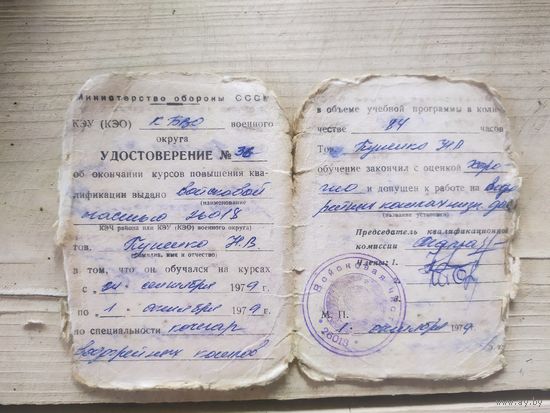 Министерство обороны СССР
КЭУ (КЭО) КБВО военного
округа
УДОСТОВЕРЕНИЕ № 38
об окончании курсов повышения ква-
лификации выдано войсковой
(наименование
частью 26018
КЭЧ района или КЭУ (КЭО) военного округа)
тов. Куценко Н.В.
(фамилия, имя и отчество)
в том, что он обучался на курсах
с сентября 1979 г
по 1 октября 1979 г.
по специальности кочегар
водогрейных котлов
в объеме учебной программы в коли-
честве 84 часов
Тов. Куценко Н.В
обучение закончил с оценкой хоро-
шо и допущен к работе на водо
грейных котлах низк. дав
(название установки)
Председатель квалификационной
комиссии
Члены: 1.
2.
Войсковая часть
26018
М. П.
1. октября 1979
www.ay.by